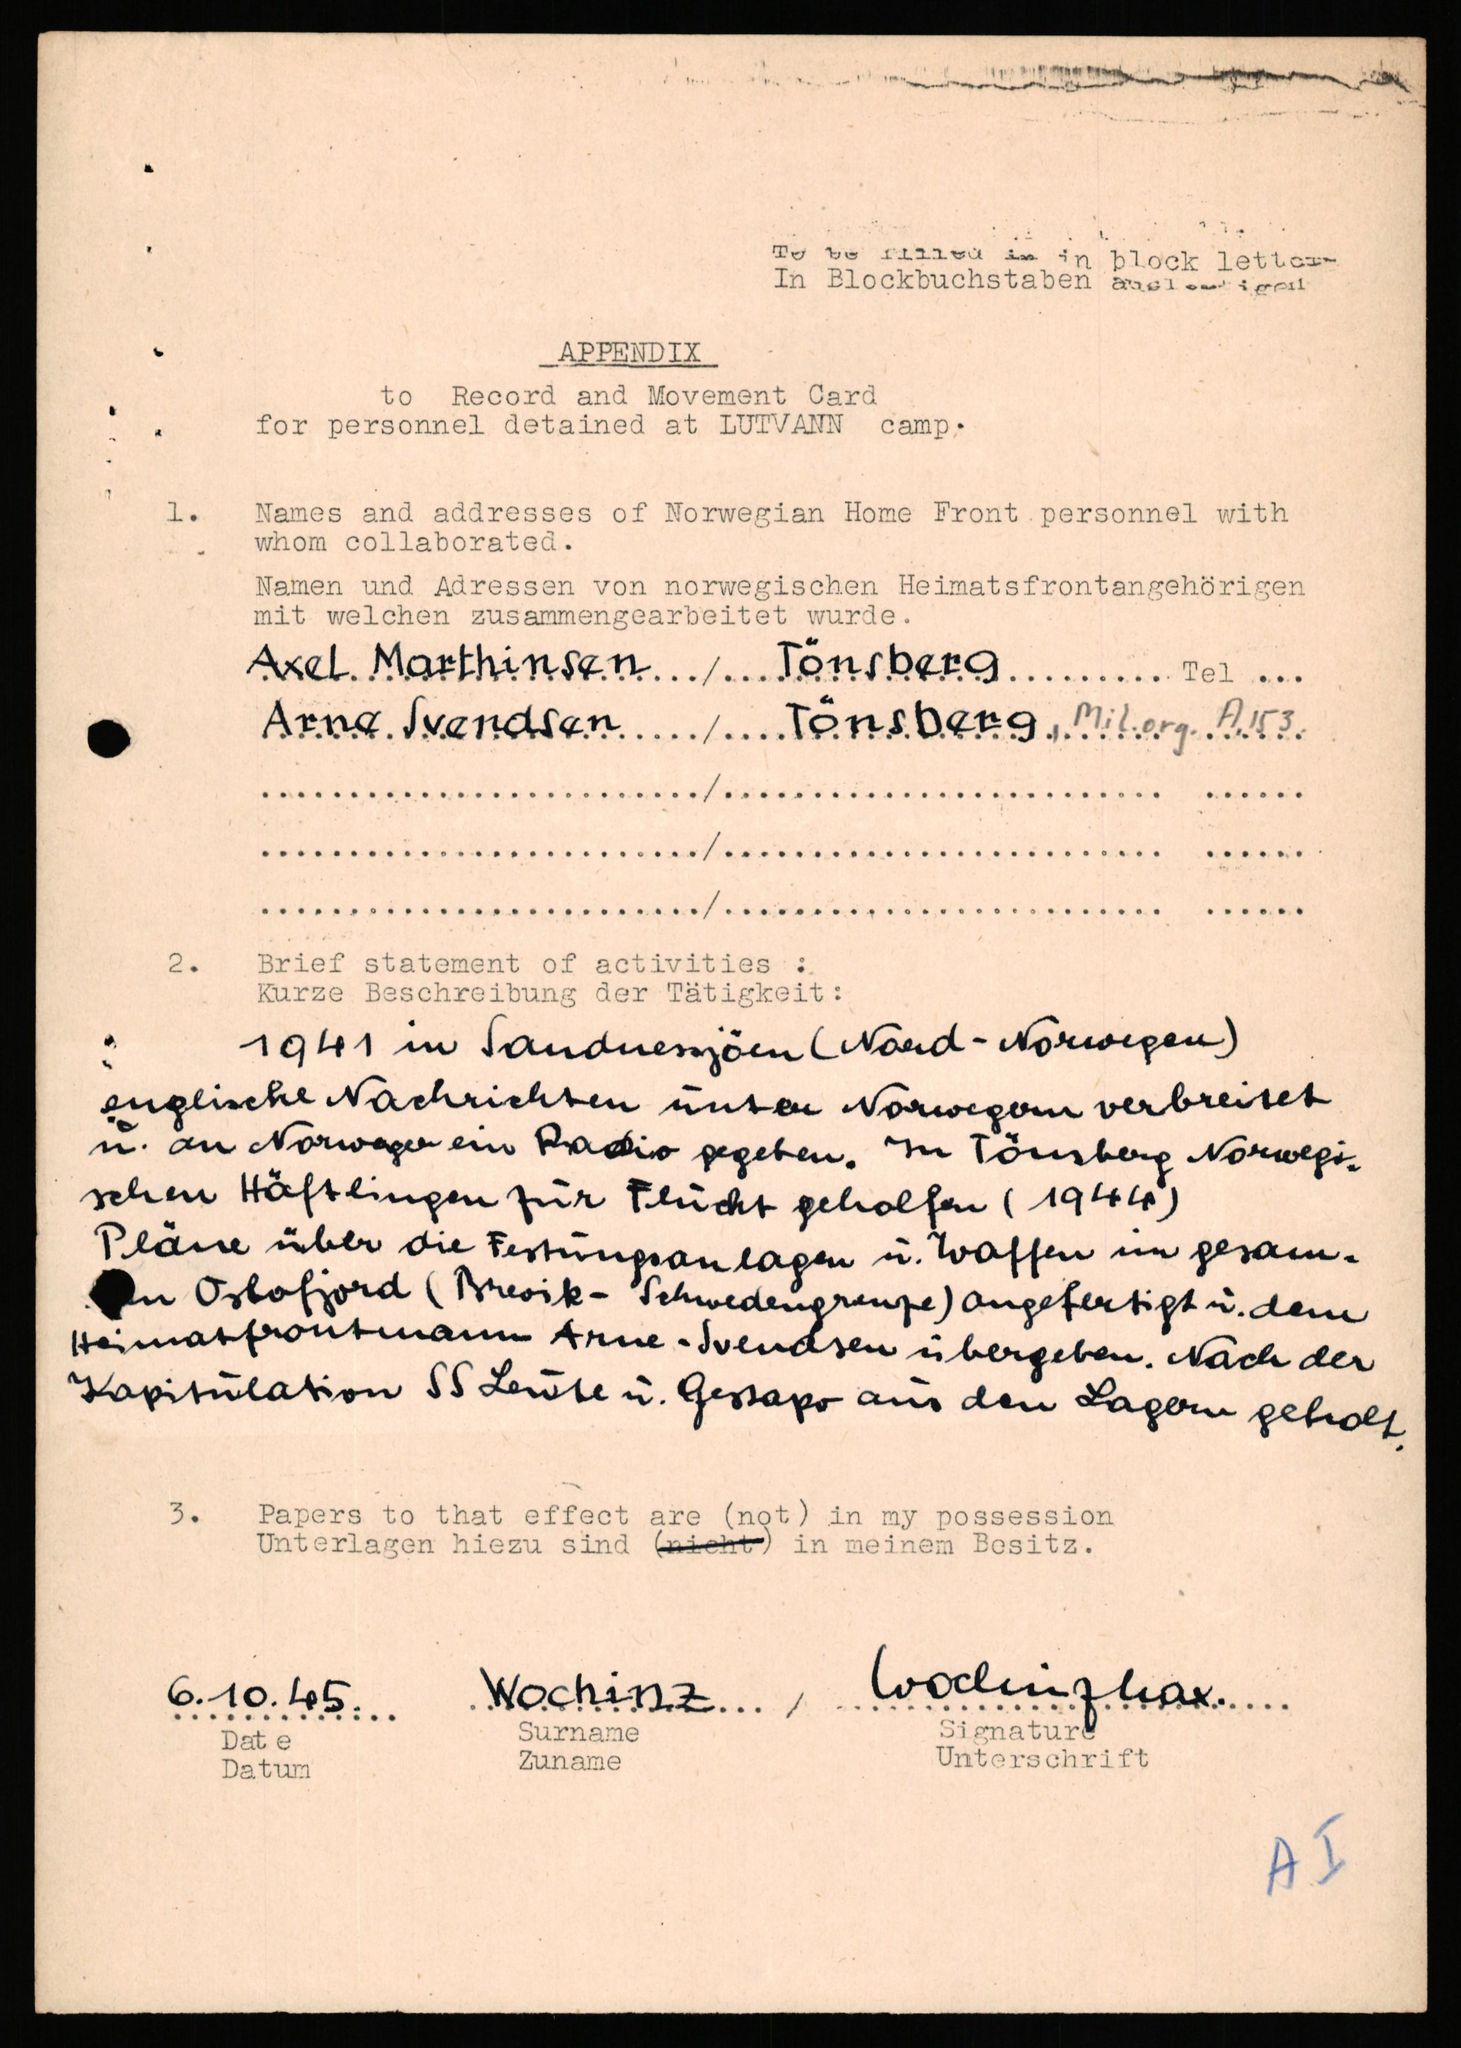 To be filled in in block letter
In Blockbuchstaben
APPENDIX
to Record and Movement Card
for personnel detained at LUTVANN camp.
1. Names and addresses of Norwegian Home Front personnel with
whom collaborated.
Namen und Adressen von norwegischen Heimatsfrontangehörigen
mit welchen zusammengearbeitet wurde.
Axel Marthinsen / Tönsberg Tel ...
Arne Svendsen / Tönsberg, Mil.org. A,153.
........................./......................... ......
........................./......................... ......
........................./......................... ......
2. Brief statement of activities :
Kurze Beschreibung der Tätigkeit:
1941 in Sandnessjöen (Nord-Norwegen)
englische Nachrichten unter Norwegern verbreitet
u. an Norweger ein Radio gegeben. In Tönsberg Norwegi-
schen Häftlingen zur Flucht geholfen (1944)
Pläne über die Festungsanlagen u. Waffen im gesam-
en Oslofjord (Brevik- Schwedengrenze) angefertigt u. dem
Heimatfrontmann Arne-Svendsen übergeben. Nach der
Kapitulation SS Leute u. Gestapo aus den Lagern geholt.
3. Papers to that effect are (not) in my possession
Unterlagen hiezu sind (nicht) in meinem Besitz.
6.10.45. Wochinz / Wochinz Max.
Date Surname Signature
Datum Zuname Unterschrift
A I